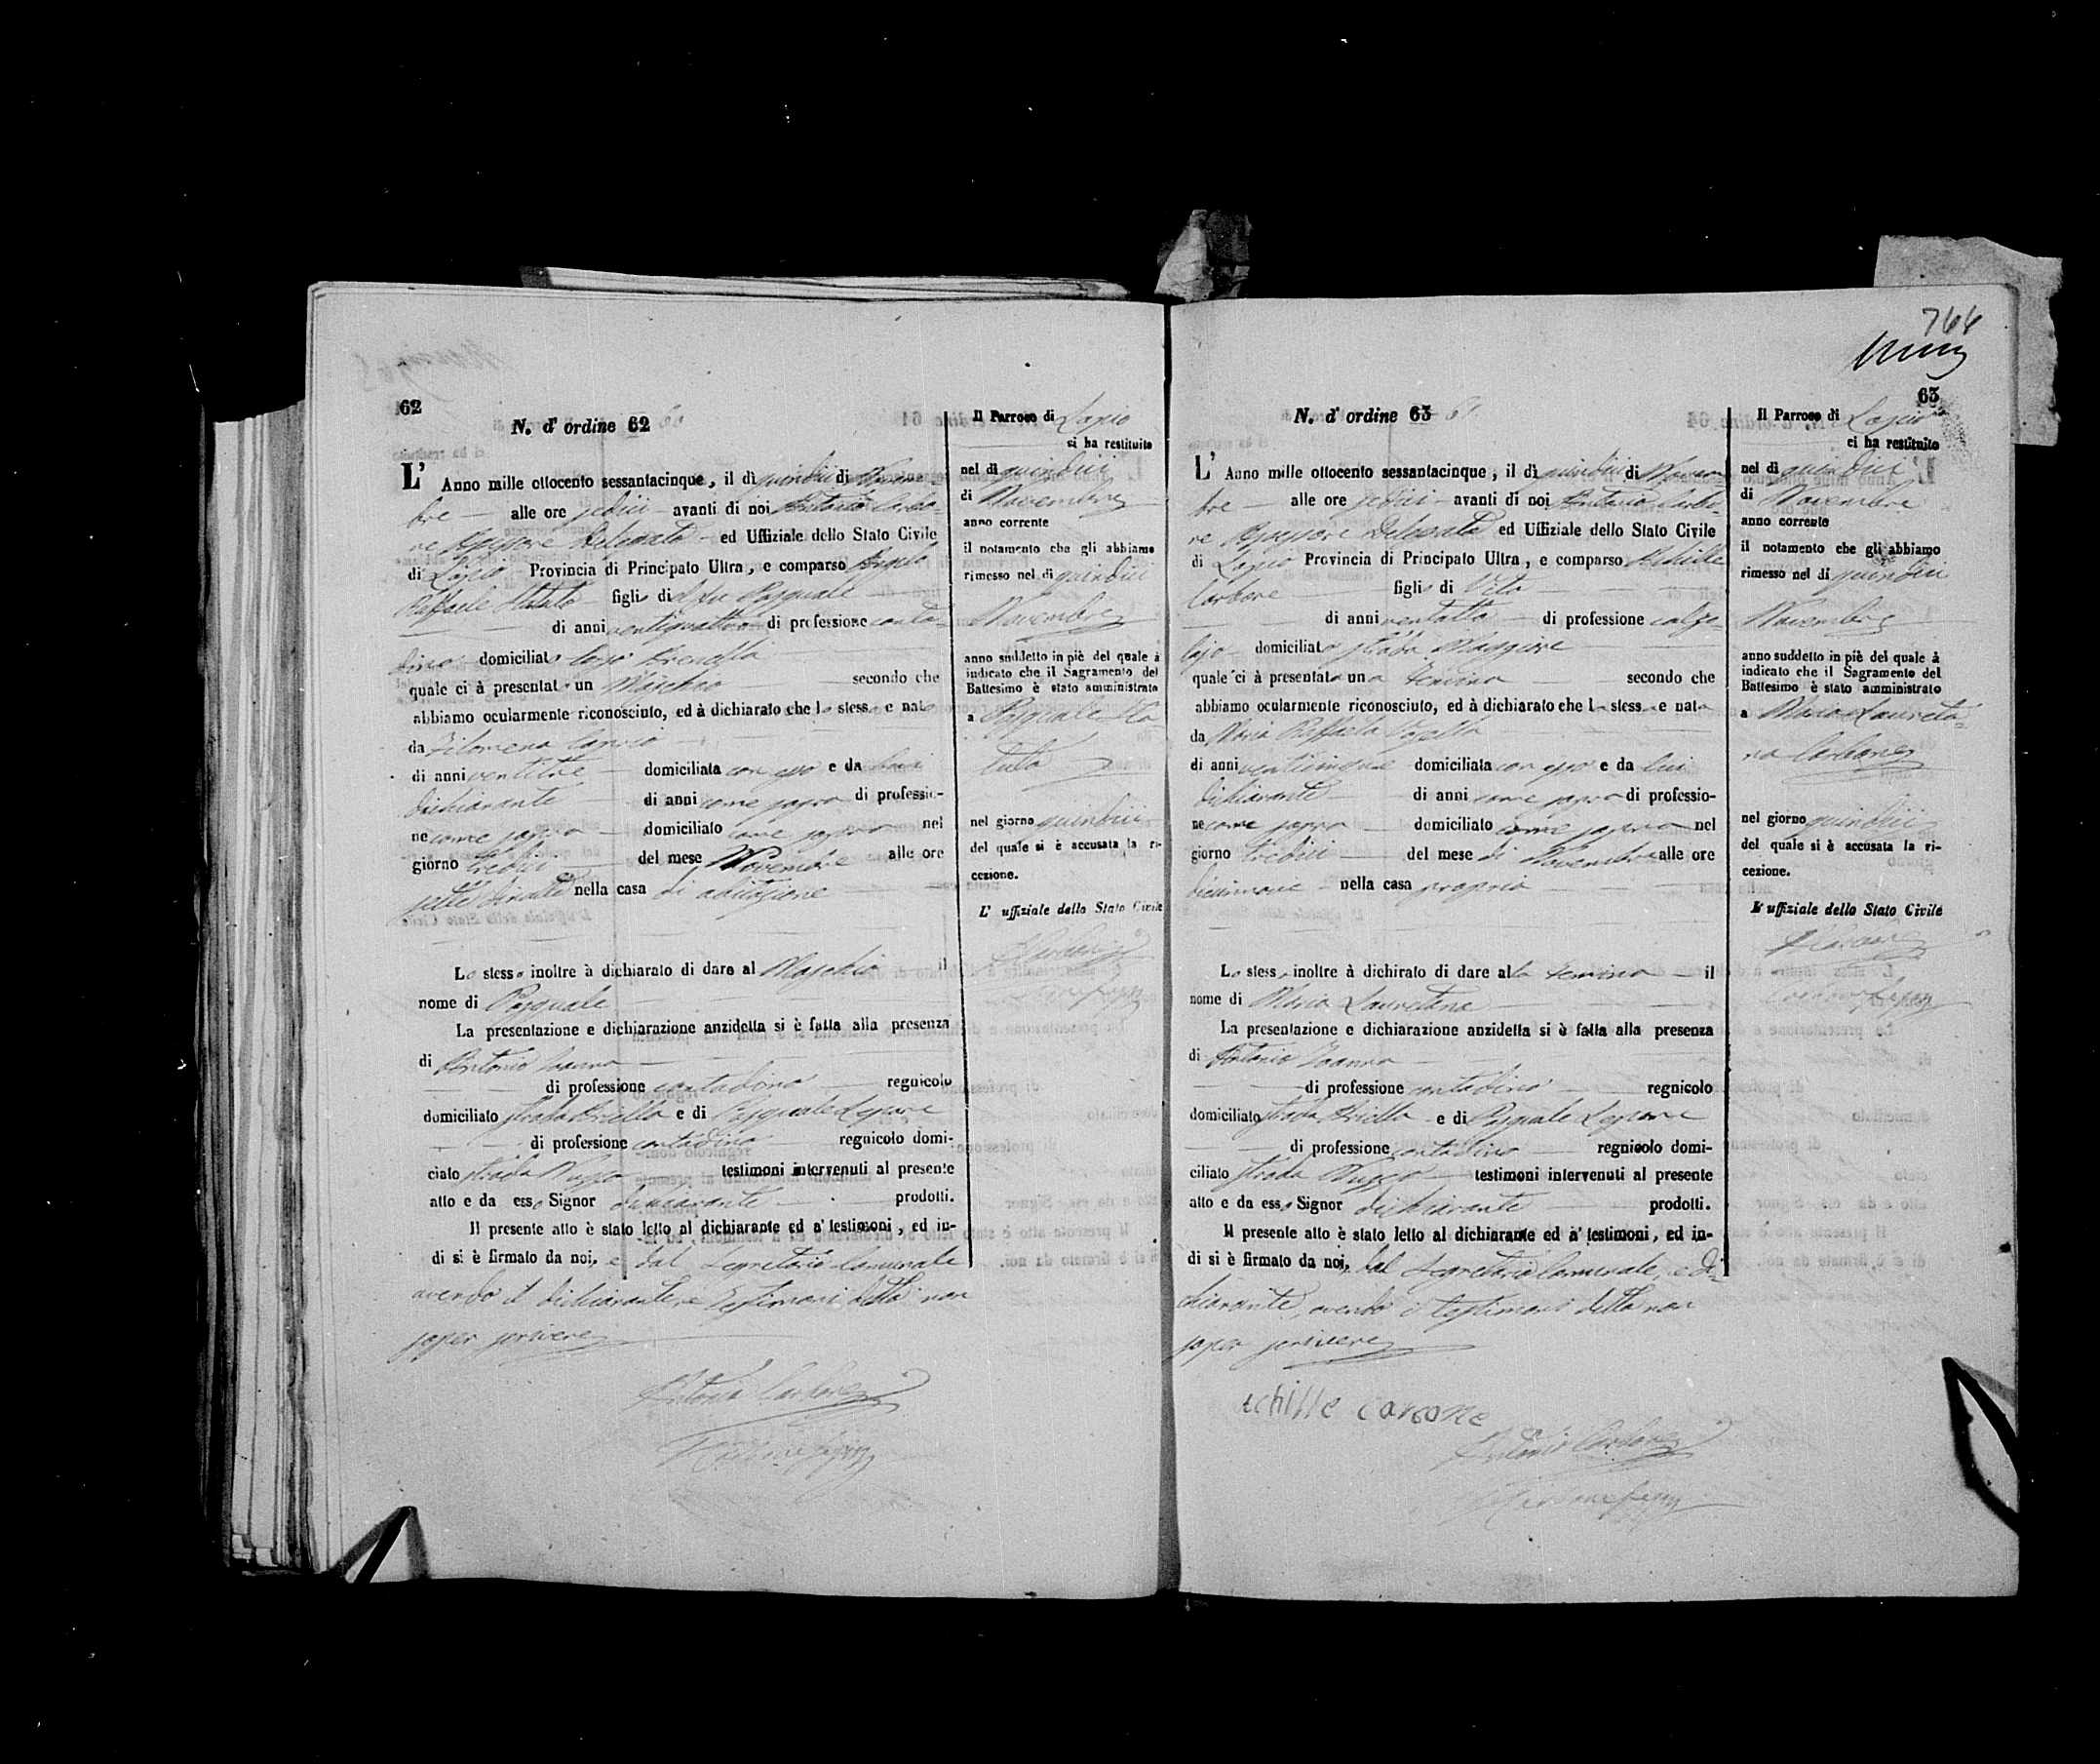 62
N. d' ordine 62
L' Anno mille ottocento sessantacinque, il dì quindici di Novem
bre alle ore sedici avanti di noi Antonio Carbo-
ne Assessore Delegato ed Uffiziale dello Stato Civile
di Lapio Provincia di Principato Ultra, e comparso Angelo
Raffaele figlio di del fu Pasquale
di anni ventiquattro di professione conta-
dino domiciliato
quale ci à presentato un Maschio secondo che
abbiamo ocularmente riconosciuto, ed à dichiarato che lo stesso e nato
da Filomena
di anni ventitre domiciliata con esso e da lui
dichiarante di anni come sopra di professio-
ne come sopra domiciliato come sopra nel
giorno tredici del mese Novembre alle ore
sette nella casa di abitazione
Lo stesso inoltre à dichiarato di dare al Maschio il
nome di Pasquale
La presentazione e dichiarazione anzidetta si è fatta alla presenza
di Antonio Ioanna
di professione contadino regnicolo
domiciliato strada e di Pasquale Lepore
di professione contadino regnicolo domi-
ciato strada testimoni intervenuti al presente
atto e da esso Signor dichiarante prodotti.
Il presente atto è stato letto al dichiarante ed a' testimoni, ed in-
di si è firmato da noi, e dal Segretario Comunale
avendo il dichiarante, e testimoni detto non
saper scrivere
Antonio Carbone
Il Parroco di Lapio
ci ha restituito
nel dì quindici
di Novembre
anno corrente
il notamento che gli abbiamo
rimesso nel di quindici
Novembre
anno suddetto in piè del quale à
indicato che il Sagramento del
Battesimo è stato amministrato
a Pasquale
nel giorno quindici
del quale si è accusata la ri-
cezione.
L' uffiziale dello Stato Civile
764
63
N. d' ordine 63
L' Anno mille ottocento sessantacinque, il dì quindici di Novem
bre alle ore sedici avanti di noi Antonio Carbo-
ne Assessore Delegato ed Uffiziale dello Stato Civile
di Lapio Provincia di Principato Ultra, e comparso Achille
Carbone figlio di Vito
di anni ventotto di professione calzo-
lajo domiciliato strada Maggiore
quale ci à presentato una femina secondo che
abbiamo ocularmente riconosciuto, ed à dichiarato che la stessa e nata
da Maria Raffaela
di anni venticinque domiciliata con esso e da lui
dichiarante di anni come sopra di professio-
ne come sopra domiciliato come sopra nel
giorno tredici del mese di Novembre alle ore
diecinnove nella casa propria
Lo stesso inoltre à dichirato di dare alla femina il
nome di Maria Lauretana
La presentazione e dichiarazione anzidetta si è fatta alla presenza
di Antonio Ioanna
di professione contadino regnicolo
domiciliato strada e di Pasquale Lepore
di professione contadino regnicolo domi-
ciliato strada testimoni intervenuti al presente
atto e da esso Signor dichiarante prodotti.
Il presente atto è stato letto al dichiarante ed a' testimoni, ed in-
di si è firmato da noi, dal Segretario Comunale, e di-
chiarante, avendo i testimoni detto non
saper scrivere
achille carbone
Antonio Carbone
Il Parroco di Lapio
ci ha restituito
nel dì quindici
di Novembre
anno corrente
il notamento che gli abbiamo
rimesso nel di quindici
Novembre
anno suddetto in piè del quale à
indicato che il Sagramento del
Battesimo è stato amministrato
a Maria Laureta-
na Carbone
nel giorno quindici
del quale si è accusata la ri-
cezione.
L' uffiziale dello Stato Civile
A Carbone